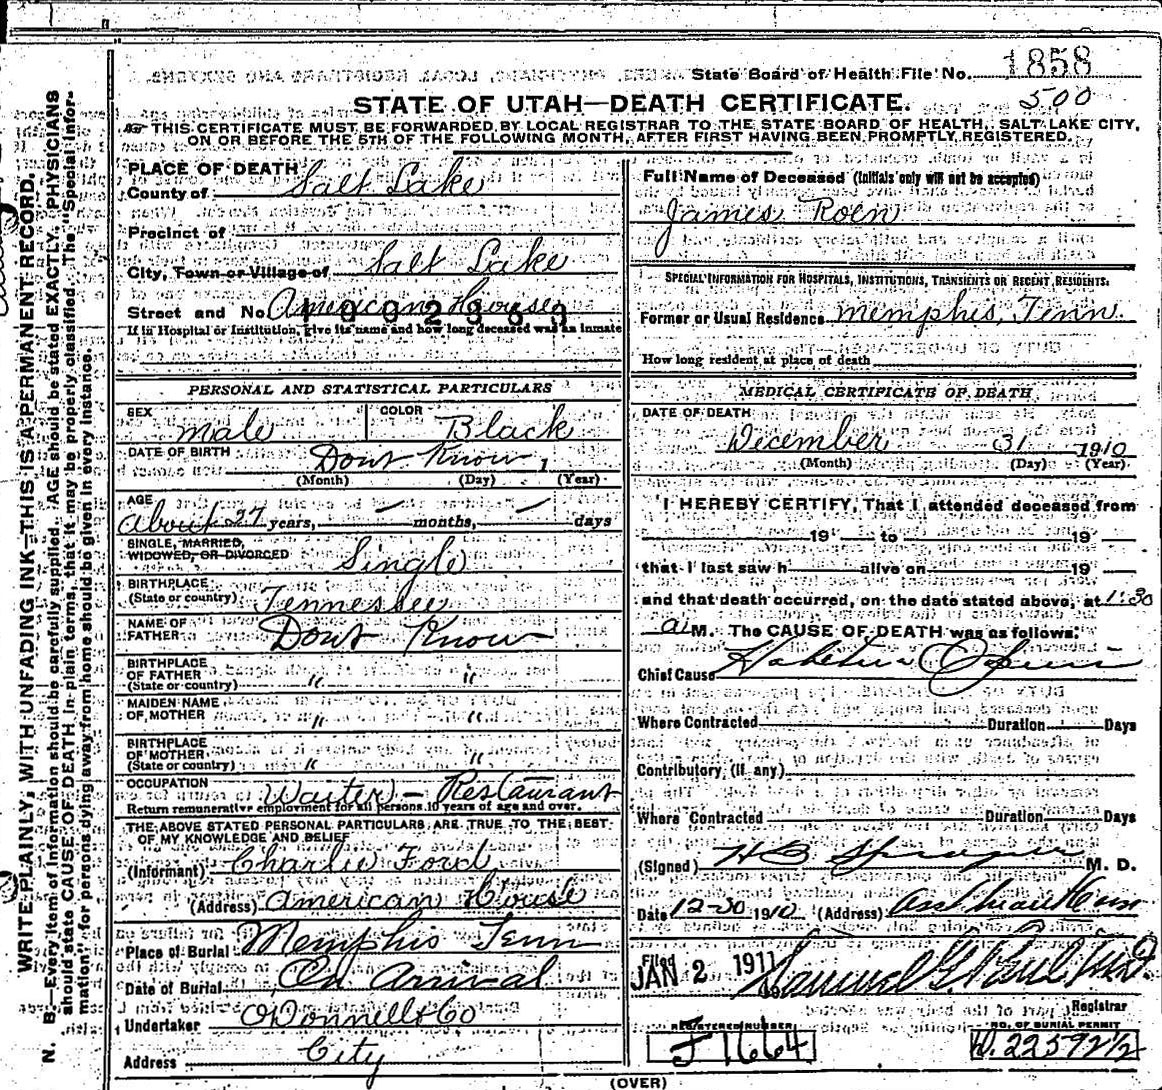 State Board of Health File No. 1858
500
STATE OF UTAH—DEATH CERTIFICATE.
THIS CERTIFICATE MUST BE FORWARDED BY LOCAL REGISTRAR TO THE STATE BOARD OF HEALTH, SALT LAKE CITY,
ON OR BEFORE THE 5TH OF THE FOLLOWING MONTH, AFTER FIRST HAVING BEEN PROMPTLY REGISTERED.
WRITE PLAINLY, WITH UNFADING INK—THIS IS A PERMANENT RECORD.
N. B.—Every item of information should be carefully supplied. AGE should be stated EXACTLY. PHYSICIANS
should state CAUSE OF DEATH in plain terms, that it may be properly classified. The "Special Infor-
mation" for persons dying away from home should be given in every instance.
PLACE OF DEATH
County of Salt Lake
Precinct of
City, Town or Village of Salt Lake
Street and No. American House
If in Hospital or Institution, give its name and how long deceased was an inmate
PERSONAL AND STATISTICAL PARTICULARS
SEX male COLOR Black
DATE OF BIRTH Dont Know 1
(Month) (Day) (Year)
AGE
about 27 years, — months, — days
SINGLE, MARRIED,
WIDOWED, OR DIVORCED Single
BIRTHPLACE
(State or country) Tennessee
NAME OF
FATHER Dont Know
BIRTHPLACE
OF FATHER
(State or country) " "
MAIDEN NAME
OF MOTHER " "
BIRTHPLACE
OF MOTHER
(State or country) " "
OCCUPATION Waiter — Restaurant
Return remunerative employment for all persons 10 years of age and over.
THE ABOVE STATED PERSONAL PARTICULARS ARE TRUE TO THE BEST
OF MY KNOWLEDGE AND BELIEF
(Informant) Charlie Ford
(Address) American House
Place of Burial Memphis Tenn
Date of Burial On Arrival
Undertaker O'Donnell & Co
Address City
Full Name of Deceased (Initials only will not be accepted)
James Roen
SPECIAL INFORMATION FOR HOSPITALS, INSTITUTIONS, TRANSIENTS OR RECENT RESIDENTS:
Former or Usual Residence Memphis, Tenn.
How long resident at place of death
MEDICAL CERTIFICATE OF DEATH
DATE OF DEATH
December 31 1910
(Month) (Day) (Year)
I HEREBY CERTIFY, That I attended deceased from
19 to 19
that I last saw h alive on 19
and that death occurred, on the date stated above, at 1:30
a M. The CAUSE OF DEATH was as follows:
Chief Cause
Where Contracted Duration Days
Contributory, (if any)
Where Contracted Duration Days
(Signed) M. D.
Date 12-30 1910 (Address)
Filed
JAN 2 1911
Registrar
REGISTERED NUMBER NO. OF BURIAL PERMIT
J 1664 D. 22592 1/2
(OVER)